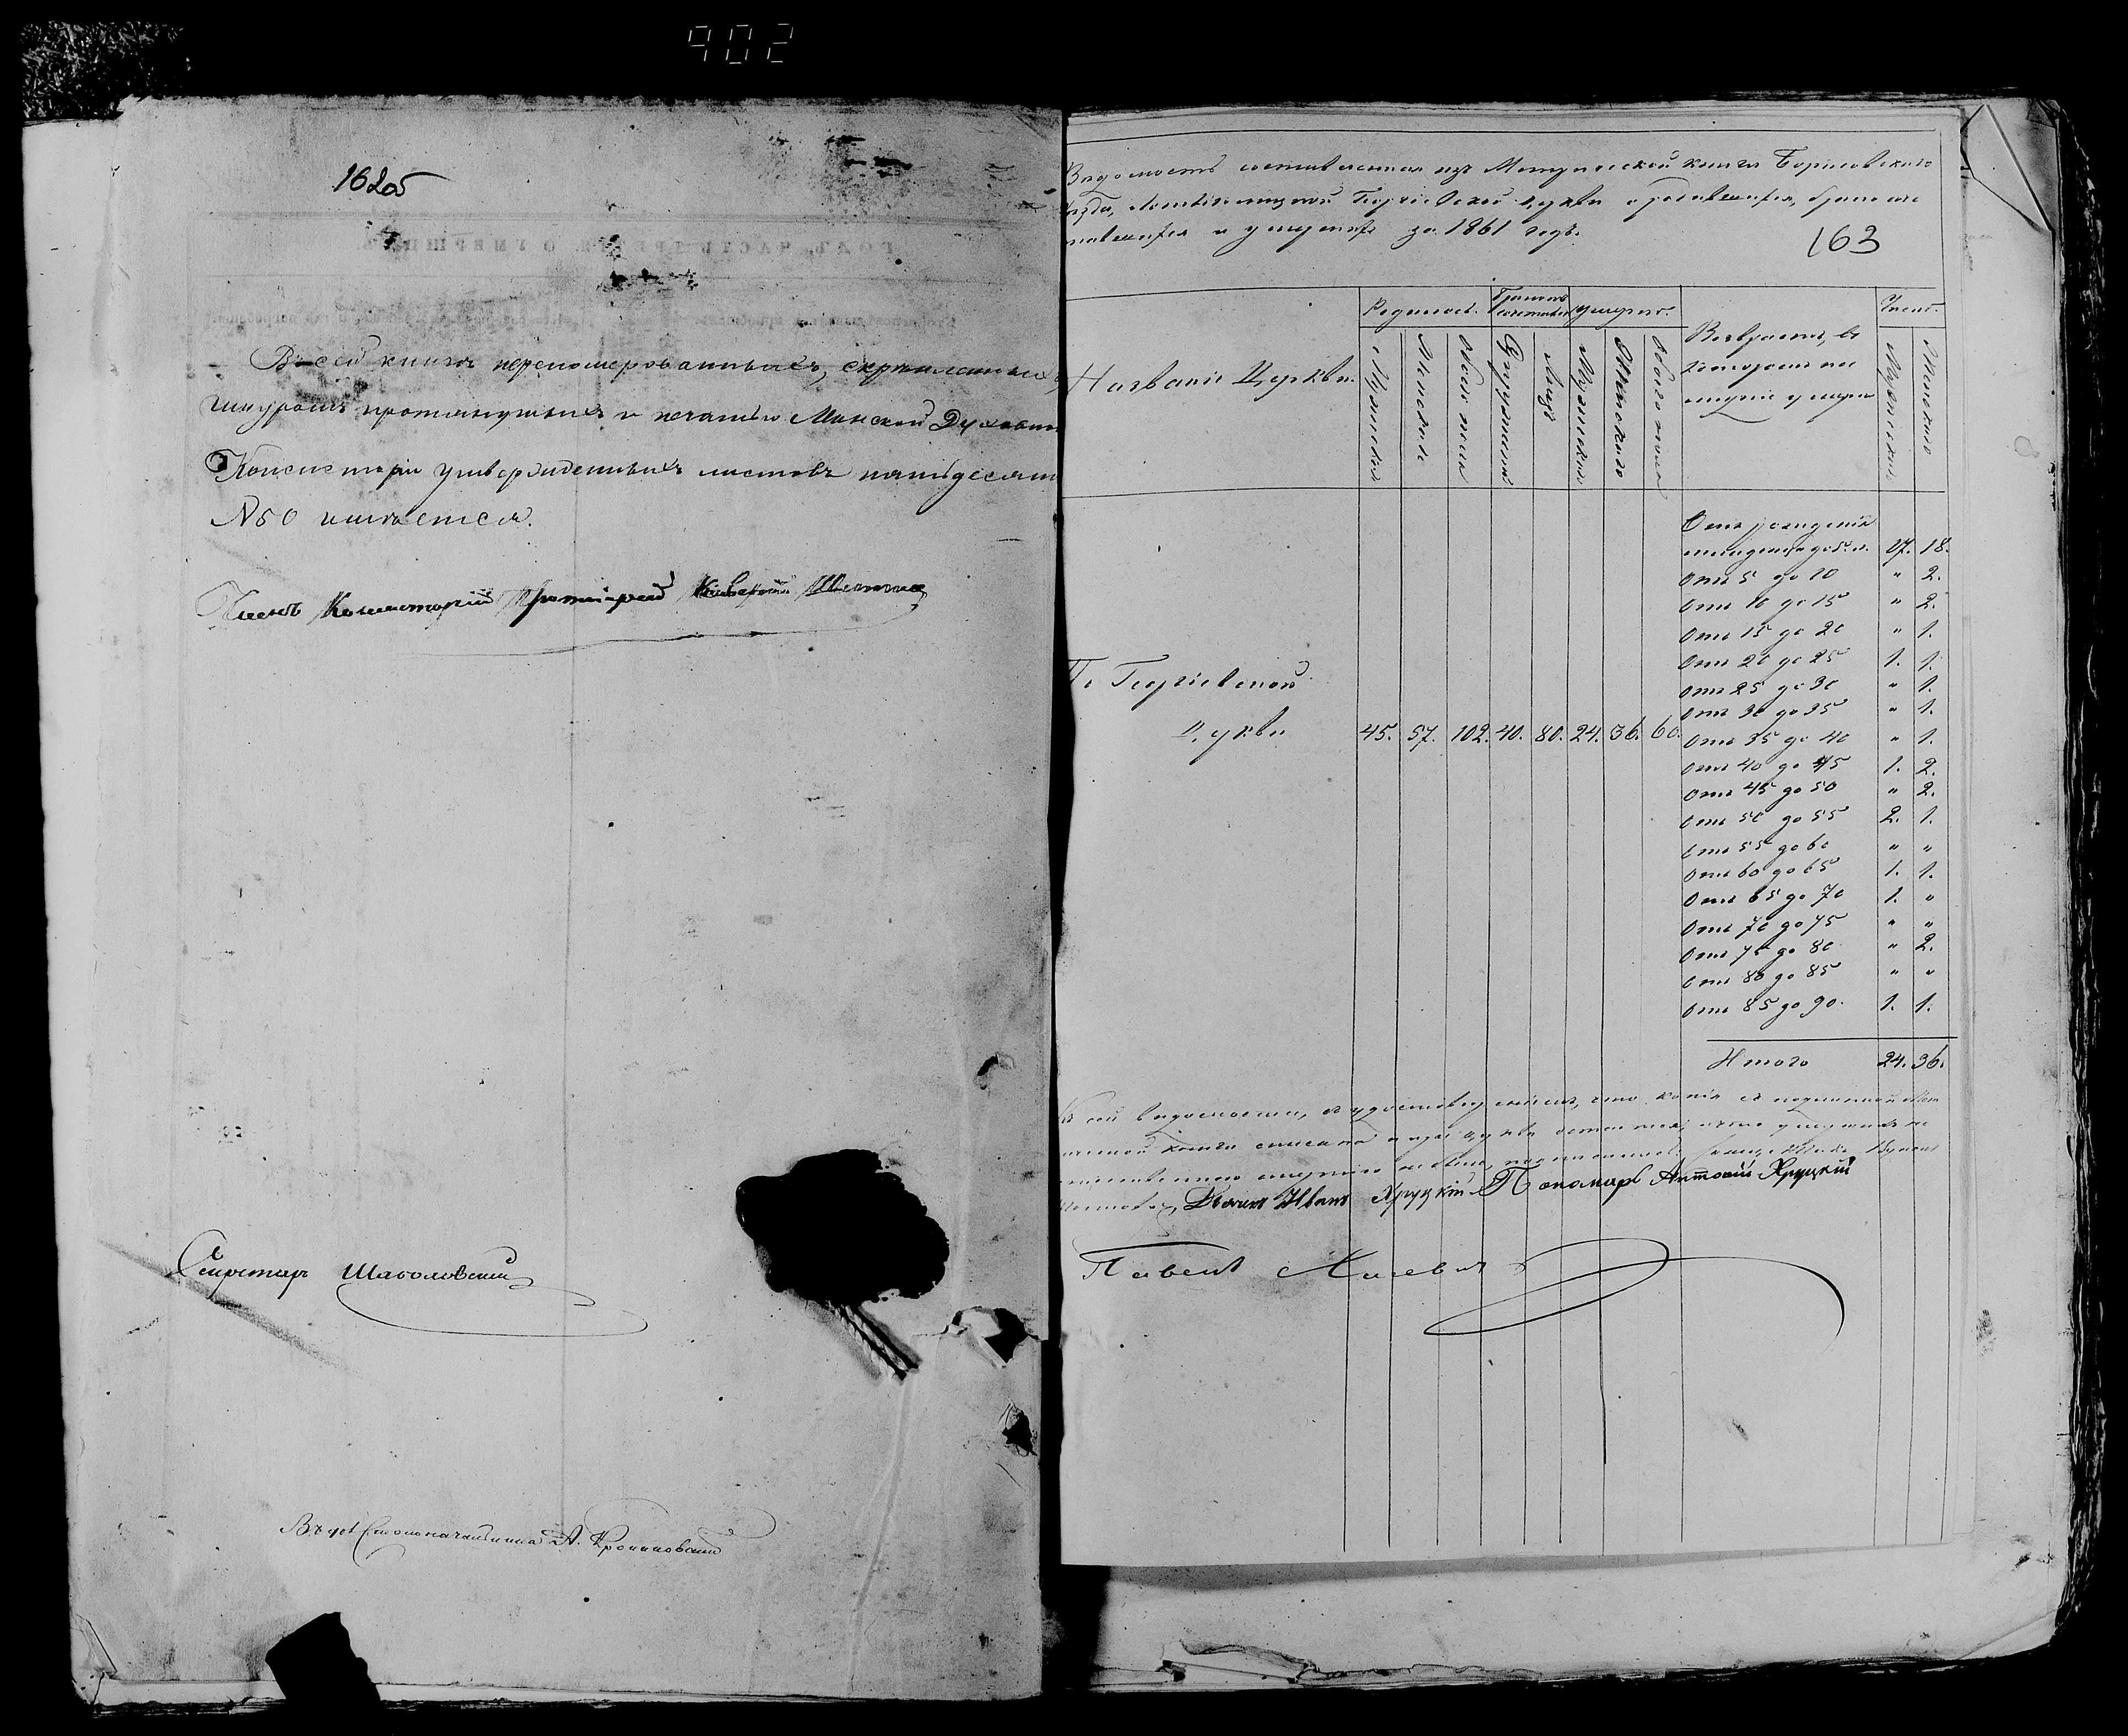 902
162об
Въ сей книгѣ перепомерованныхъ, скрѣпленныхъ
шнуромъ протянутыхъ и печатью Минской Духовн
Консисторіи утвержденныхъ листовъ пятьдесятъ
№ 50 имѣется.
Членъ Консисторіи Протоіерей
Секретарь Шаболовскій
Столоначальника А.
Вѣдомость составленная изъ Метрической книги Борисовского
Георгіевской церкви о родившихся, бракосоче
тавшихся и умершихъ за 1861 годъ.
163
Названіе Церкви.
Родилось.
Браковъ
умерло.
Мужеска
Женска
Обоего пола
Супружествъ
Лицъ
Мужеска
Женскаго
Обоего пола
Возрастъ, въ
которомъ по
слѣдніе умерли
Число.
Мужескаго
Женскаго
По Георгіевской
Церкви 45. 57. 102. 40. 80. 24. 36. 60.
Отъ рожденія
младенцевъ до 5. л. 17. 18.
Отъ 5 до 10 " 2.
Отъ 10 до 15 " 2.
Отъ 15 до 20 " 1.
Отъ 20 до 25 1. 1.
Отъ 25 до 30 " 1.
Отъ 30 до 35 " 1.
Отъ 35 до 40 " 1.
Отъ 40 до 45 1. 2.
Отъ 45 до 50 " 2.
Отъ 50 до 55 2. 1.
Отъ 55 до 60 " "
Отъ 60 до 65 1. 1.
Отъ 65 до 70 1. "
Отъ 70 до 75 " "
Отъ 75 до 80 " 2.
Отъ 80 до 85 " "
Отъ 85 до 90. 1. 1.
Итого 24. 36.
сей вѣдомости, въ удостовѣреніи, что копія съ подлинной
книги списана и при церкви
Дьячекъ Иванъ Хруцкій Пономарь Антоній Хруцкій
Павелъ